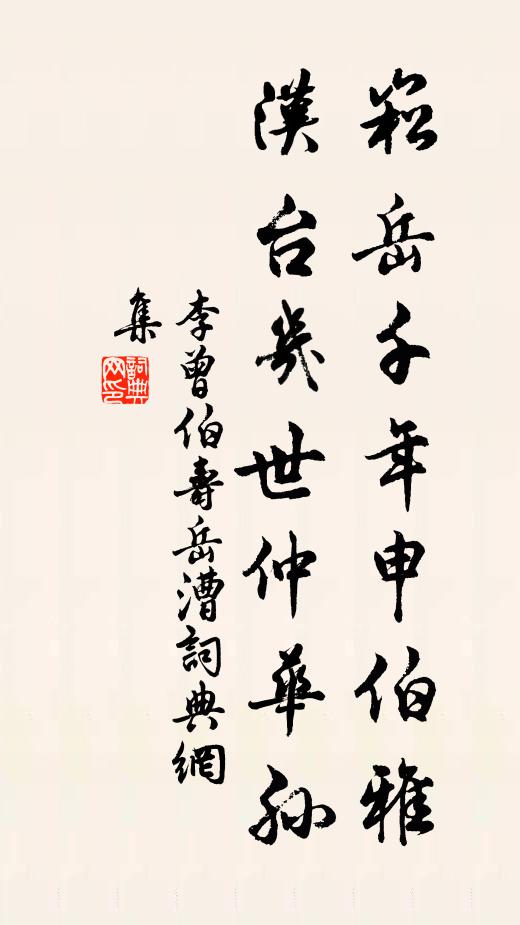 崧岳千年申伯雅
漢台幾世仲華孙
李曾伯壽岳漕詞典網
集
詞典网印